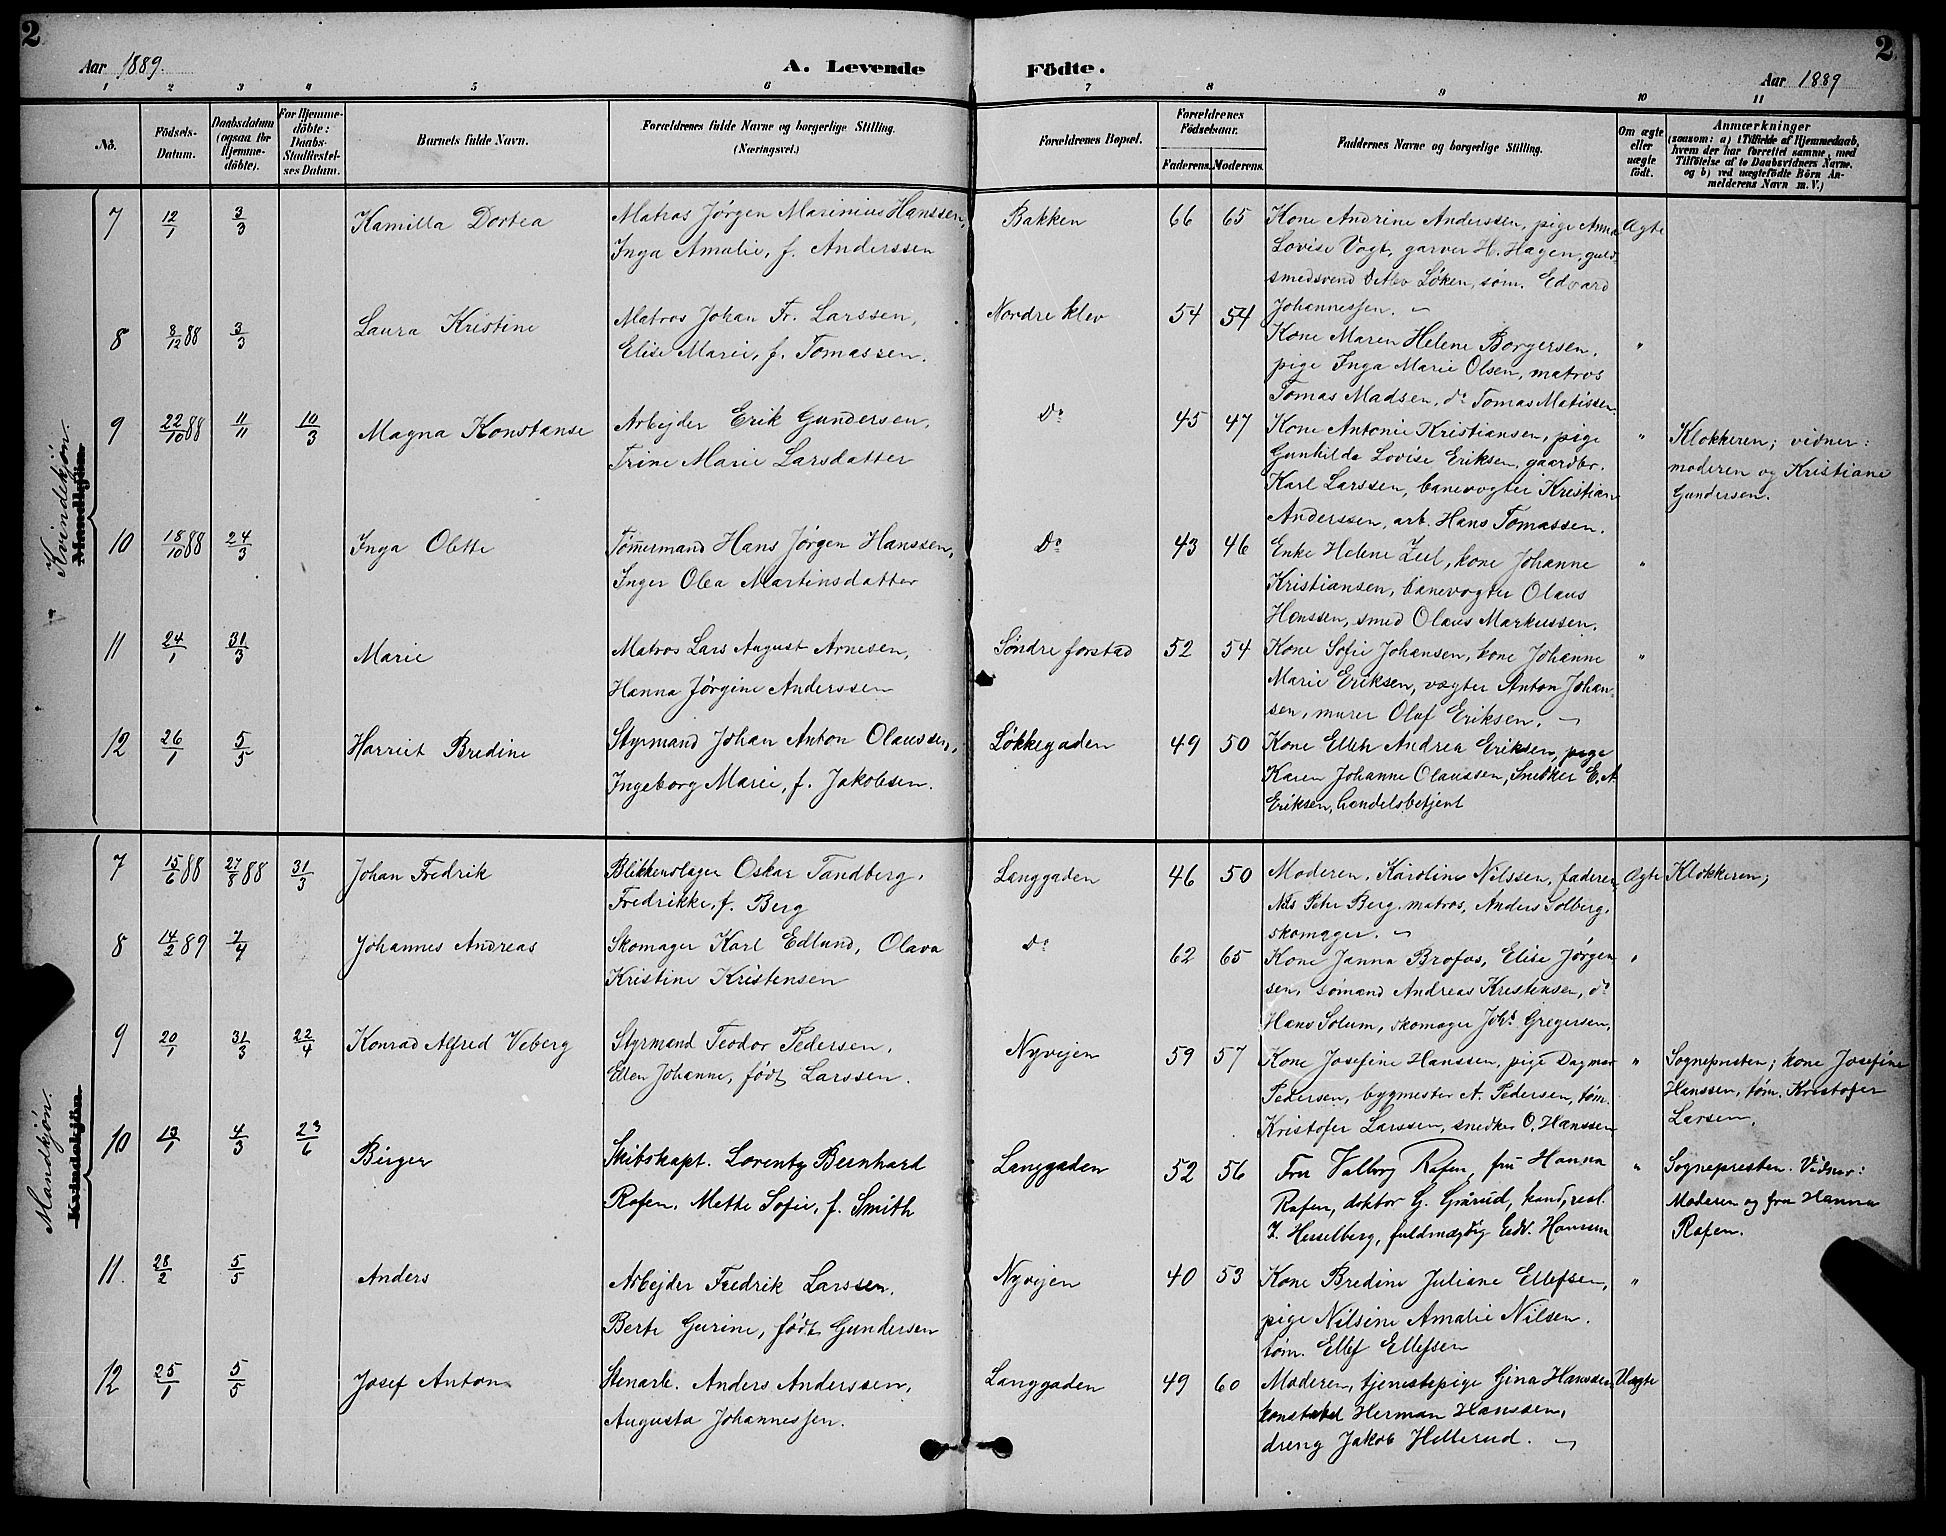 2
Aar 1889.
A. Levende Födte.
Aar 1889
2
1 2 3 4 5 6 7 8 9 10 11
No.
Födsels-Datum.
Daabsdatum (ogsaa for Hjemme-döbte).
For Hjemme-döbte: Daabs-Stadfæstel-ses Datum.
Barnets fulde Navn.
Forældrenes fulde Navne og borgerlige Stilling. (Næringsvei.)
Forældrenes Bopæl.
Forældrenes Födselsaar.
Faderens. Moderens.
Faddernes Navne og borgerlige Stilling.
Om ægte eller uægte födt.
Anmærkninger
(saasom: a) i Tilfælde af Hjemmedaab,
hvem der har forrettet samme, med
Tilföielse af to Daabsvidners Navne.
og b) ved uægtefödte Börn An-
melderens Navn m. V.)
Kvindekjøn.
Mandkjön.
7 12/1 3/3 Kamilla Dortea
Matros Jörgen Marinius Hanssen,
Inga Amalie, f. Anderssen
Bakken 66 65
Kone Andrine Anderssen, pige Anna
Lovise Vogt, garver H. Hagen, guld-
smedsvend Detlev Løken, søm. Edvard
Johannessen.
Ægte
8 8/12 88 3/3 Laura Kristine
Matros Johan Fr. Larssen,
Elise Marie, f. Tomassen.
Nordre klev 54 54
Kone Maren Helene Borgersen,
pige Inga Marie Olsen, matros
Tomas Madsen, do Tomas Matissen.
"
9 22/10 88 11/11 10/3 Magna Konstanse
Arbejder Erik Gundersen,
Trine Marie Larsdatter
Do 45 47
Kone Antonie Kristiansen, pige
Gunhilda Lovise Eriksen, gaardbr.
Karl Larssen, banevogter Kristian
Anderssen, arb. Hans Tomassen.
"
Klokkeren; vidner:
moderen og Kristiane
Gundersen.
10 18/10 88 24/3 Inga Olette
Tømmermand Hans Jørgen Hanssen,
Inger Olea Martinsdatter
Do 43 46
Enke Helene Zeel, kone Johanne
Kristiansen, banevogter Olaus
Hanssen, smed Olaus Markussen.
"
11 24/1 31/3 Marie
Matros Lars August Arnesen,
Hanna Jørgine Anderssen
Søndre forstad 52 54
Kone Sofie Johansen, kone Johanne
Marie Eriksen, vægter Anton Johan-
sen, murer Olaf Eriksen.
"
12 26/1 5/5 Harriet Bredine
Styrmand Johan Anton Olaussen,
Ingeborg Marie, f. Jakobsen.
Løkkegaden 49 50
Kone Ellen Andrea Eriksen, pige
Karen Johanne Olaussen, Snedker E. A.
Eriksen, handelsbetjent
Mandkjøn.
Kvindekjön.
7 15/6 88 27/8 88 31/3 Johan Fredrik
Blikkenslager Oskar Tandberg,
Fredrikke, f. Berg
Langgaden 46 50
Moderen, Karoline Nilssen, faderen,
Nils Petr Berg, matros, Anders Solberg,
skomager.
Ægte
Klokkeren;
8 14/2 89 7/4 Johannes Andreas
Skomager Karl Edlund, Olava
Kristine Kristensen
Do 62 65
Kone Janna Brofos, Elise Jørgen
sen, sømand Andreas Kristensen, do
Hans Solum, skomager Johs Gregersen,
"
9 20/1 31/3 22/4 Konrad Alfred Veberg
Styrmand Teodor Pedersen,
Ellen Johanne, født Larssen.
Nyvejen 59 57
Kone Josefine Hanssen, pige Dagmar
Pedersen, bygmester A. Pedersen, tøm.
Kristofer Larssen, snedker O. Hanssen
"
Sognepresten; kone Josefine
Hanssen, tøm. Kristofer
Larsen.
10 13/1 4/3 23/6 Birger
Skibskapt. Lorentz Bernhard
Rafen, Mette Sofie, f. Smith
Langgaden 52 56
Fru Valborg Rafen, fru Hanna
Rafen, doktor G. Gjørud, kand. real.
I. Hesselberg, fuldmægtig Edv. Hansen
"
Sognepresten. Vidner:
Moderen og fru Hanna
Rafen.
11. 28/2 5/5 Anders
Arbejder Fredrik Larssen,
Berte Gurine, født Gundersen
Nyvejen 40 53
Kone Bredine Juliane Ellefsen,
pige Nilsine Amalie Nilsen.
tøm. Ellef Ellefsen
"
12 25/1 5/5 Josef Anton
Stenarb. Anders Anderssen,
Augusta Johannessen.
Langgaden 49 60
Moderen, tjenestepige Gina Hanssen,
konstabel Herman Hanssen,
dreng Jakob Hellerud.
Uægte